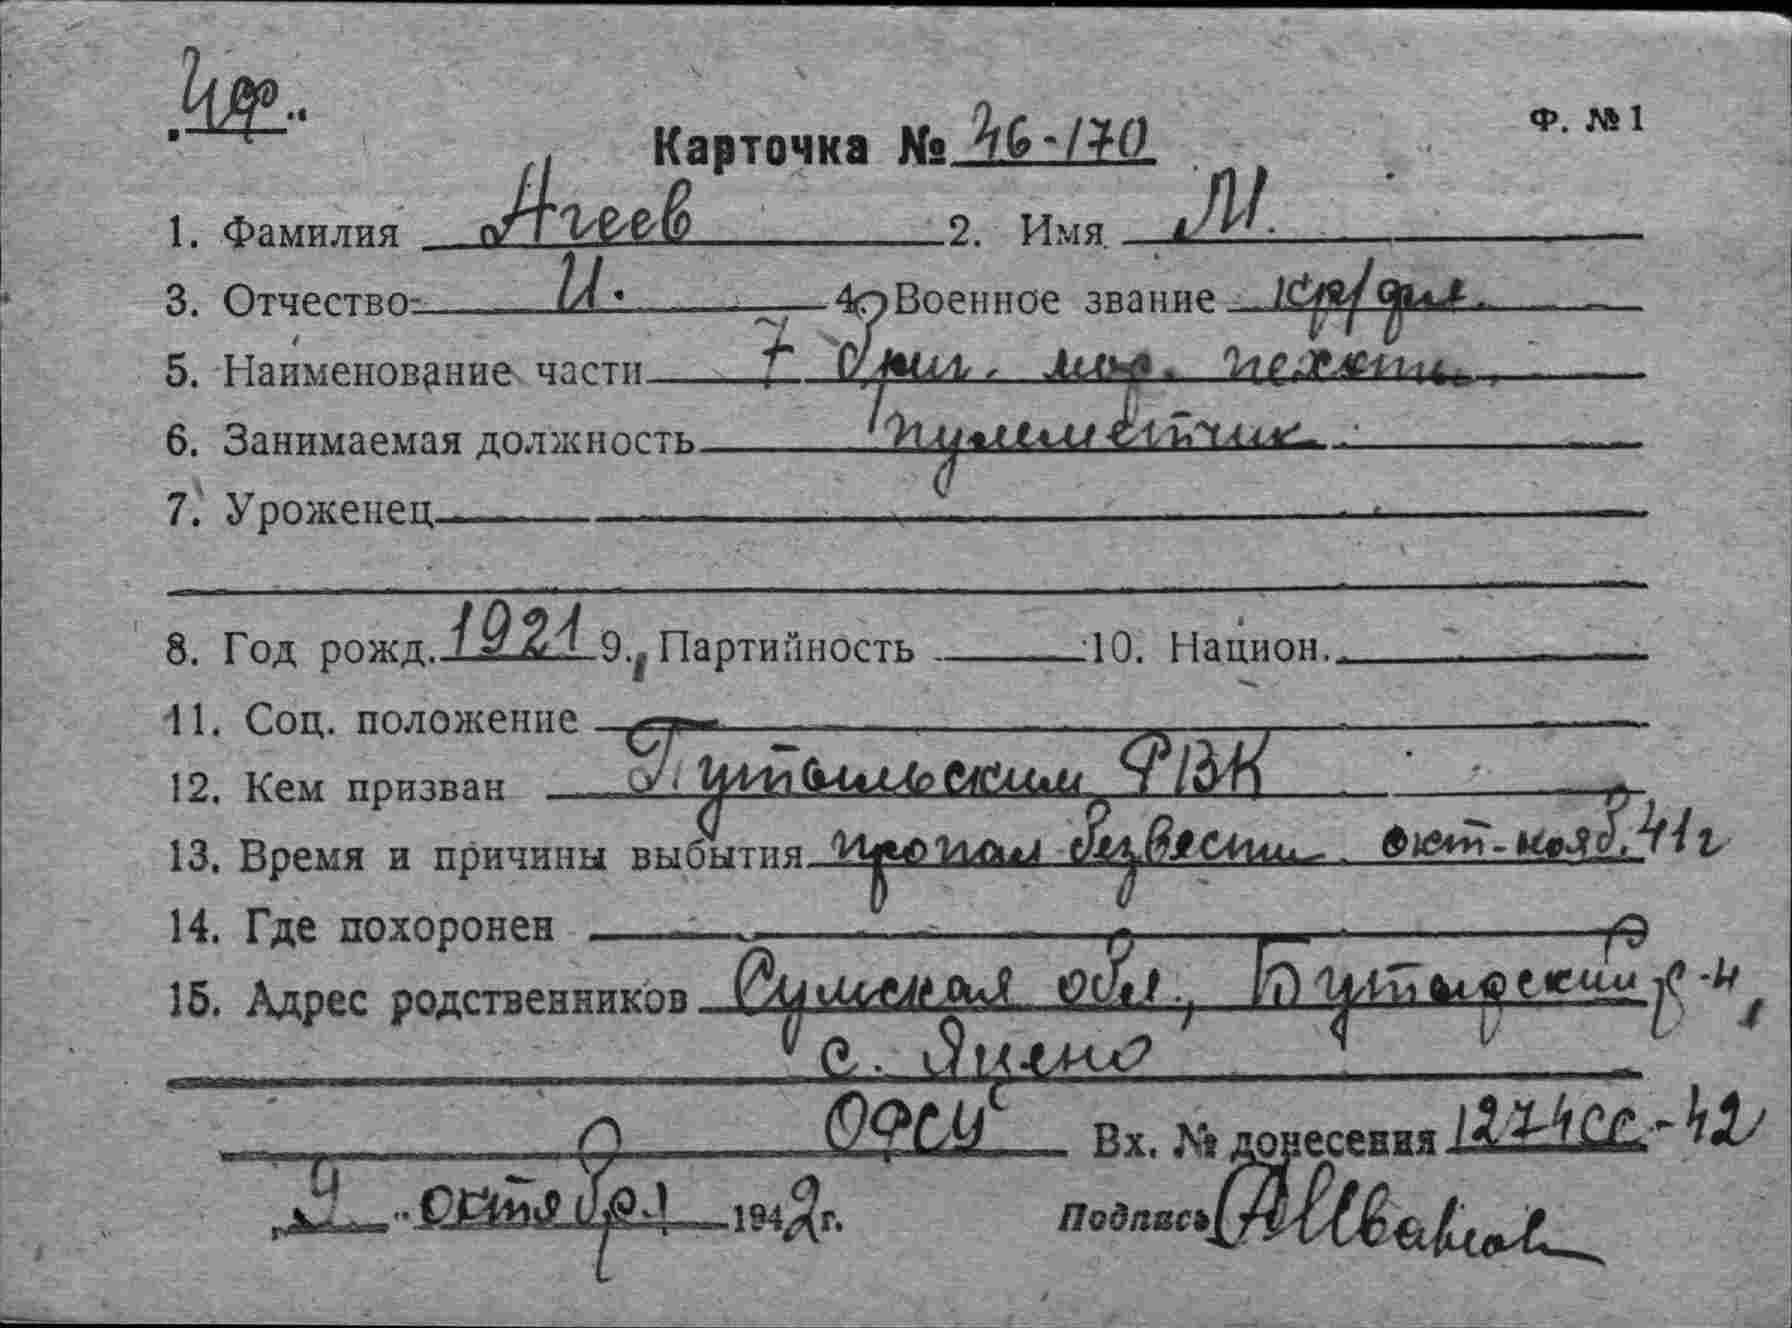 Ф. № 1
Карточка № 46-170
1. Фамилия Агеев 2. Имя М.
3. Отчество И. 4. Военное звание кр/фл.
5. Наименование части 7 бриг. мор. пехоты
6. Занимаемая должность пулеметчик
7. Уроженец
8. Год рожд. 1921 9. Партийность 10. Национ.
11. Соц. положение
12. Кем призван РВК
13. Время и причины выбытия пропал безвести окт-нояб. 41 г
14. Где похоронен
15. Адрес родственников Сумская обл., р-н,
с. Яцено
ОФСУ Вх. № донесения 1274сс-42
"9" октября 1942 г. Подпись